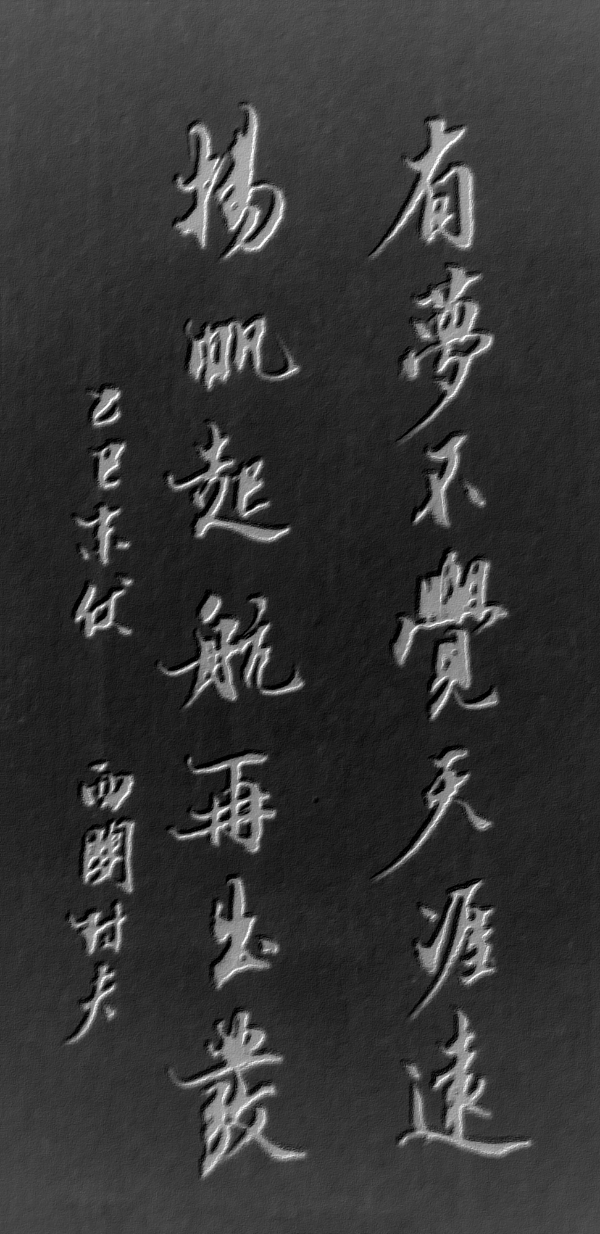 有夢不覺天涯遠
揚帆起航再出發
乙巳末伏 西關村夫